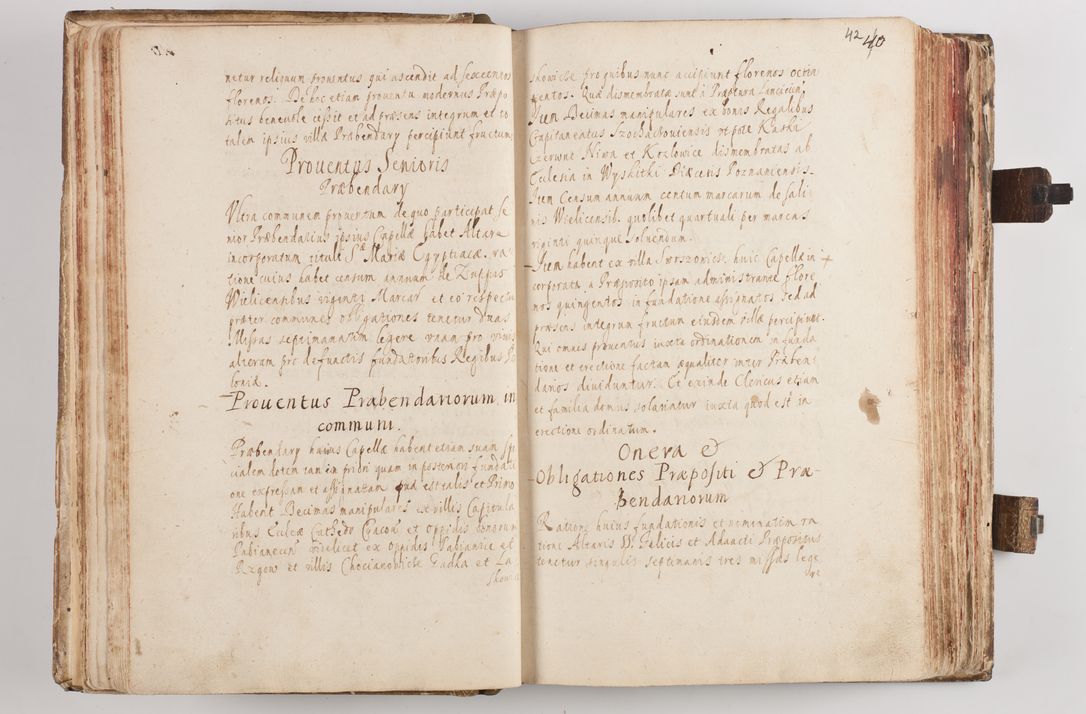 netur reliquum prouentus qui ascendit ad sexcentos
florenos. De hoc etiam prouentu modernus Præpo
situs beneuole cessit et ad præsens integrum et to
talem ipsius villa Præbendary percipiunt fructum
Prouentus Senioris
Præbendary
Vltra communem prouentum de quo participat Se
nior Præbendarius ipsius Capellæ habet Altare
incorporatum tituli Sæ Mariæ Egyptiacæ. ra
tione cuius habet censum annuum de Zuppis
Wielicensibus viginti Marcar et eo respectu
præter communes obligationes tenetur duas
Missas septimanatim legere vnam pro viuis
alteram pro defunctis fundatoribus Regibus Po
loniæ.
Prouentus Præbendariorum in
communi.
Præbendary huius Capellæ habent etiam suam spe
cialem dotem tam in priori quam in posteriori fundati
one expressam et assignatam qua est talis et Primo
Habent Decimas manipulares ex villis Capitula
ribus Eccleæ Cathedr Cracou et oppidis bonorum
Pabianecen videlicet ex Oppidis Pabianice et
Rzgow et villis Chocianowicze Gadka et La
skowice
42 40
skowicze pro quibus nunc accipiunt florenos octin
gentos. Quæ dismembratæ sunt a Præptura Lancicien
Item Decimas manipulares ex bonis Regalibus
Capitaneatus Szochaczouiensis vtpote Kaski
Czerwone Niwa et Kozlowice dismembratas ab
Ecclesia in Wyskitki Diæcesis Poznaniensis.
Item Censum annuum centum marcarum de Sali
nis Wielicensib. quolibet quartuali per marcas
viginti quinque soluendum.
Item habent ex villa Swrszowice huic Capellæ in
corporata, a Præposito ipsam administrante flore
nos quingentos in fundatione assignatos sed ad
præsens integrum fructum eiusdem villæ percipiunt.
Qui omnes prouentus iuxta ordinationem in funda
tione et erectione factam æqualiter inter Præben
darios diuiduntur. Et exinde Clericus etiam
et familia domus solariatur iuxta quod est in
erectione ordinatum.
Onera &
Obligationes Præpositi & Præ-
bendariorum
Ratione huius fundationis et nominatim ra
tione Altaris SS. Felicis et Adaucti Præpositus
tenetur singulis septimanis tres missas lege
re